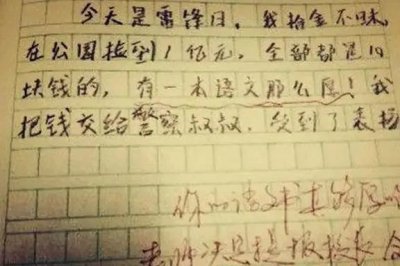 今天是雷锋日，我拾金不昧，
在公园捡到1亿元，全部都是10
块钱的，有一本语文那么厚！我
把钱交给警察叔叔，受到了表扬
你的语文书真够厚的
老师